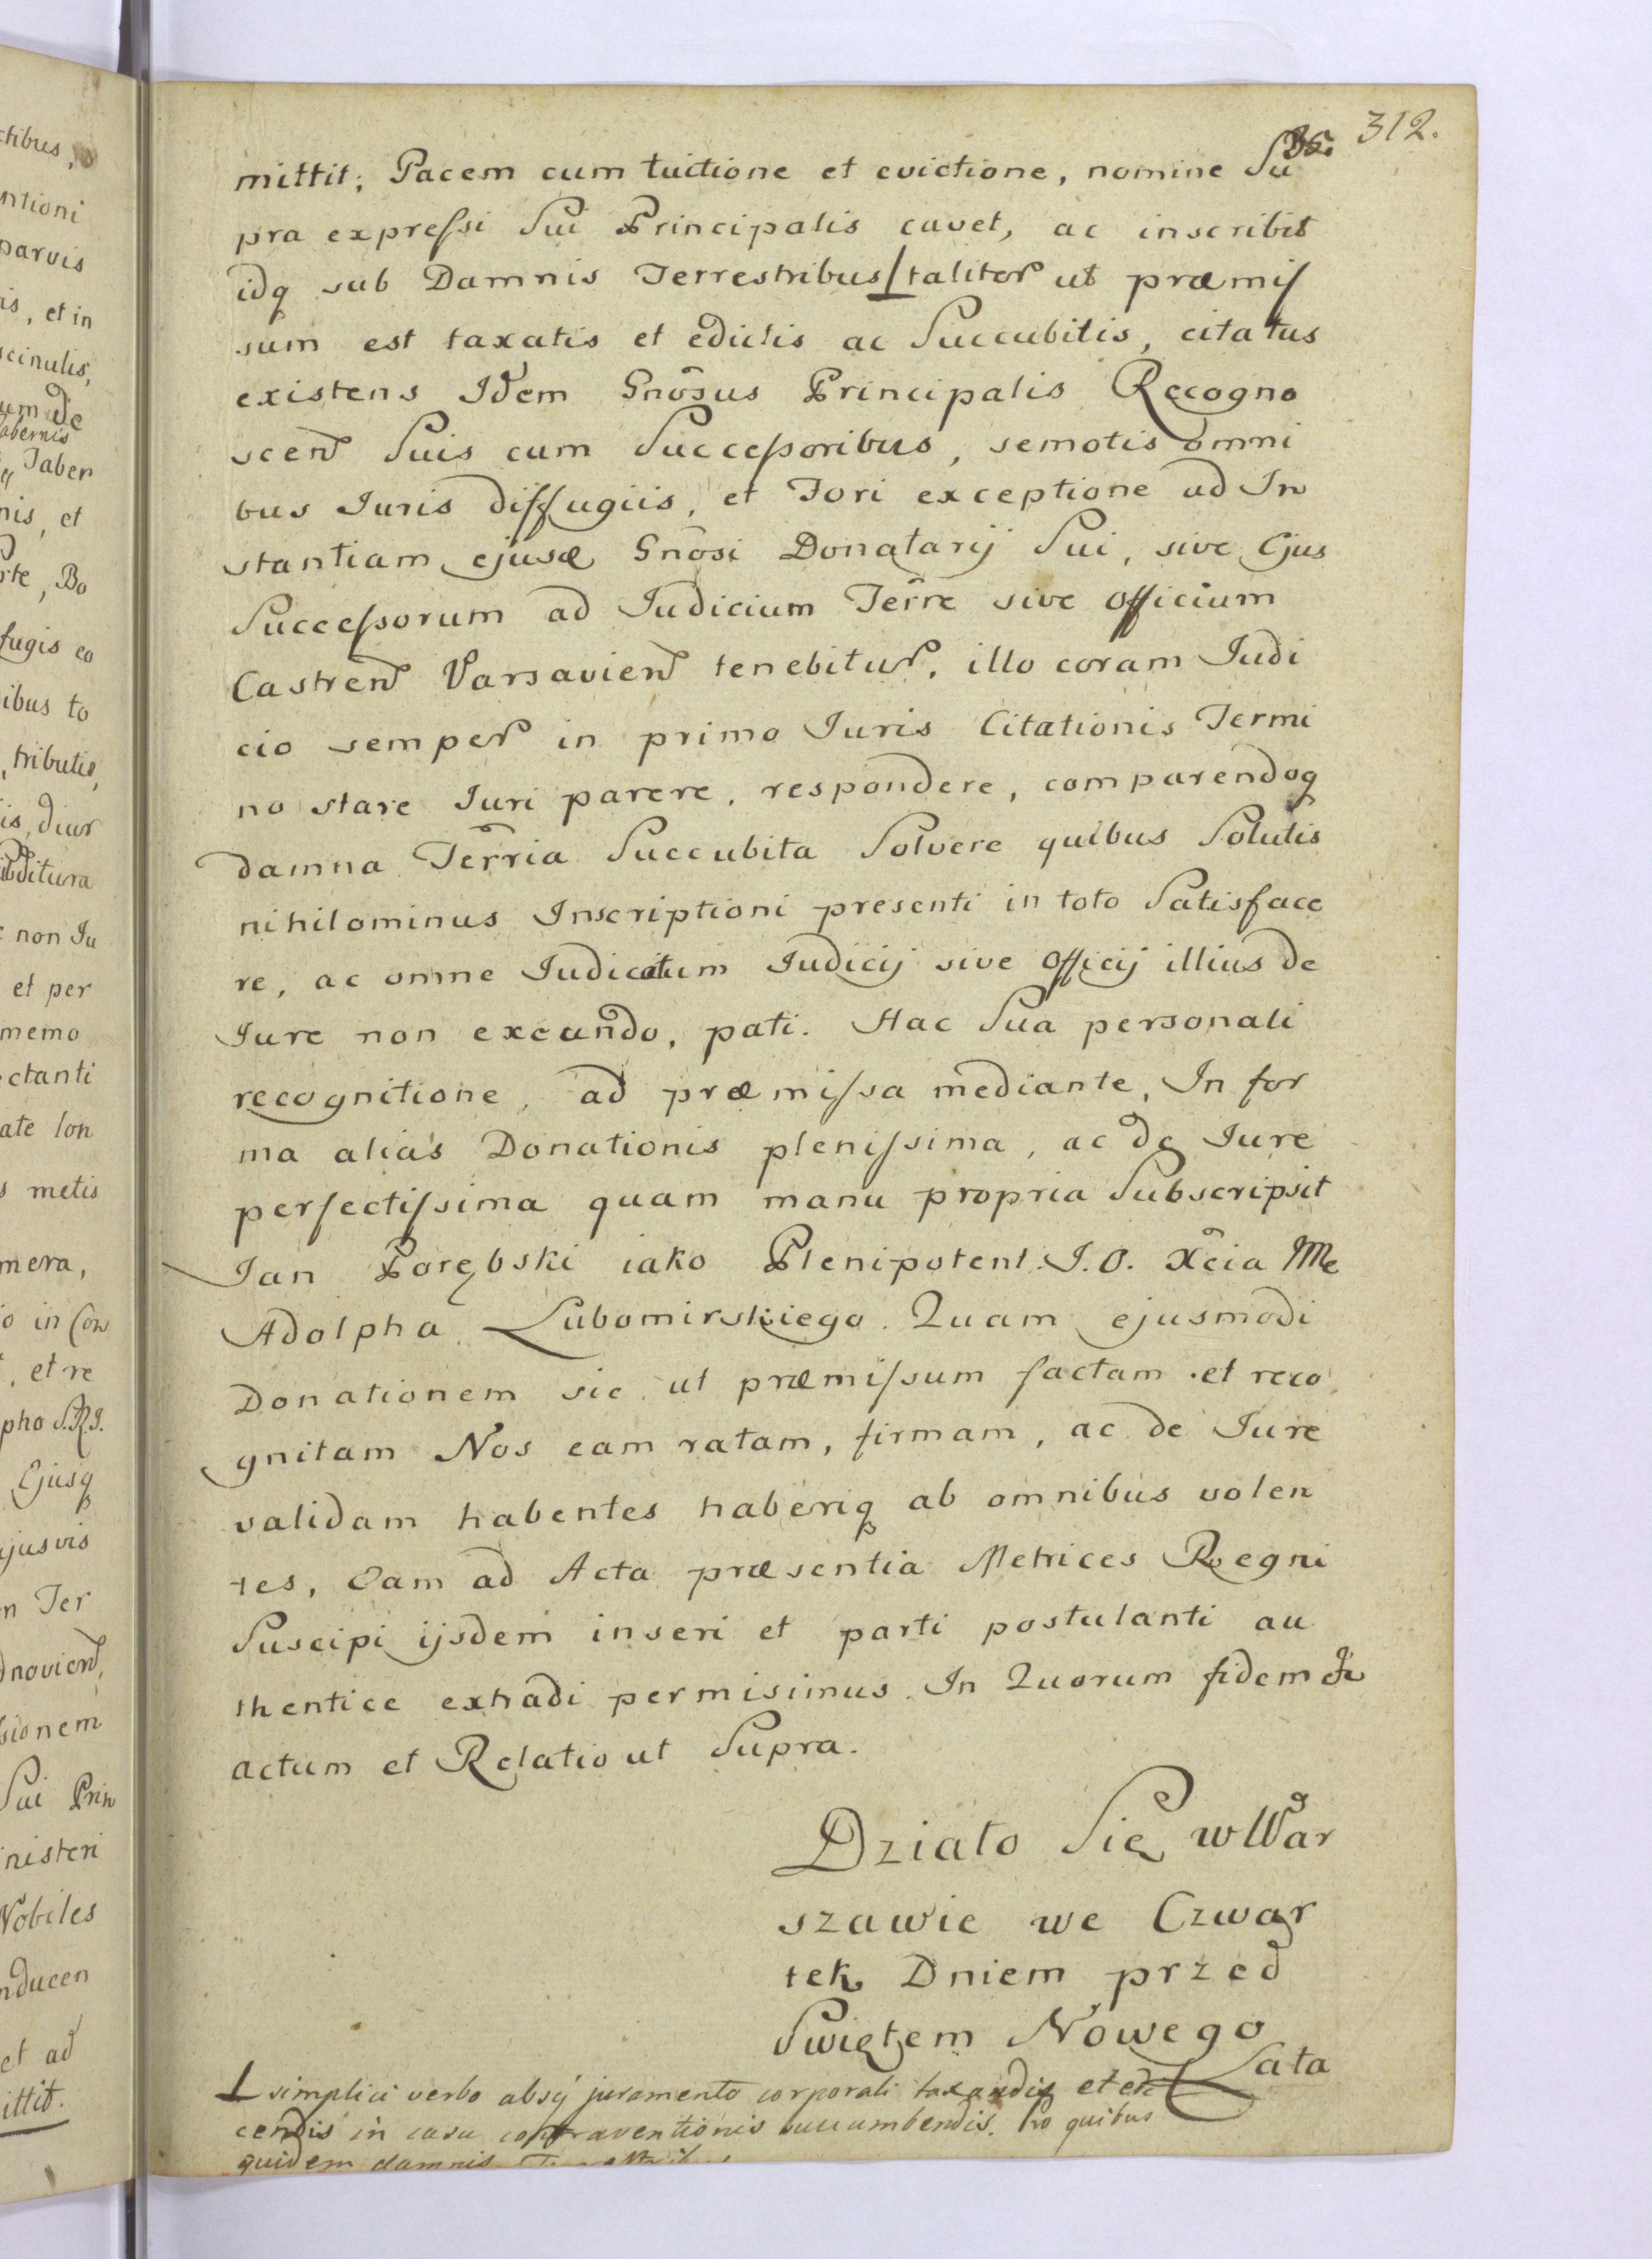 312.
mittit; Pacem cum tuitione et evictione, nomine Su
pra expreſsi Sui Principalis cavet, ac inscribit
idq sub Damnis Terrestribus taliter ut præmiſ
sum est taxatis et edictis ac Succubitis, citatus
existens Idem Gnõsus Principalis Recogno
scen Suis cum Succeſsoribus, semotis omni
bus Iuris diffugiis, et Fori exceptione ad In
stantiam ejusd Gnõsi Donatarij Sui, sive Ejus
Succeſsorum ad Iudicium Terre sive Officium
Castren Varsavien tenebitur, illo coram Iudi
cio semper in primo Iuris Citationis Termi
no stare Iuri parere, respondere, comparendoq
damna Terria Succubita Solvere quibus Solutis
nihilominus Inscriptioni presenti in toto Satisface
re, ac omne Iudicatum Iudicij sive Officij illius de
Iure non exeundo, pati. Hac Sua personali
recognitione, ad præmiſsa mediante, In for
ma alias Donationis pleniſsima, ac de Iure
perfectiſsima quam manu propria Subscripsit
Ian Porębski iako Plenipotent. J. O. Xcia Me
Adolpha Lubomirskiego. Quam ejusmodi
Donationem sic ut præmiſsum factam et reco
gnitam Nos eam ratam, firmam, ac de Iure
validam habentes haberiq ab omnibus volen
tes, Eam ad Acta præsentia Metrices Regni
Suscipi ijsdem inseri et parti postulanti au
thentice extradi permisimus. In Quorum fidem &
Actum et Relatio ut Supra.
Działo Się w War
szawie we Czwar
tek Dniem przed
Swiętem Nowego
Lata
simplici verbo absq juramento corporali taxandis et edi
cendis in casu contraventionis succumbendis. Pro quibus
quidem damnis